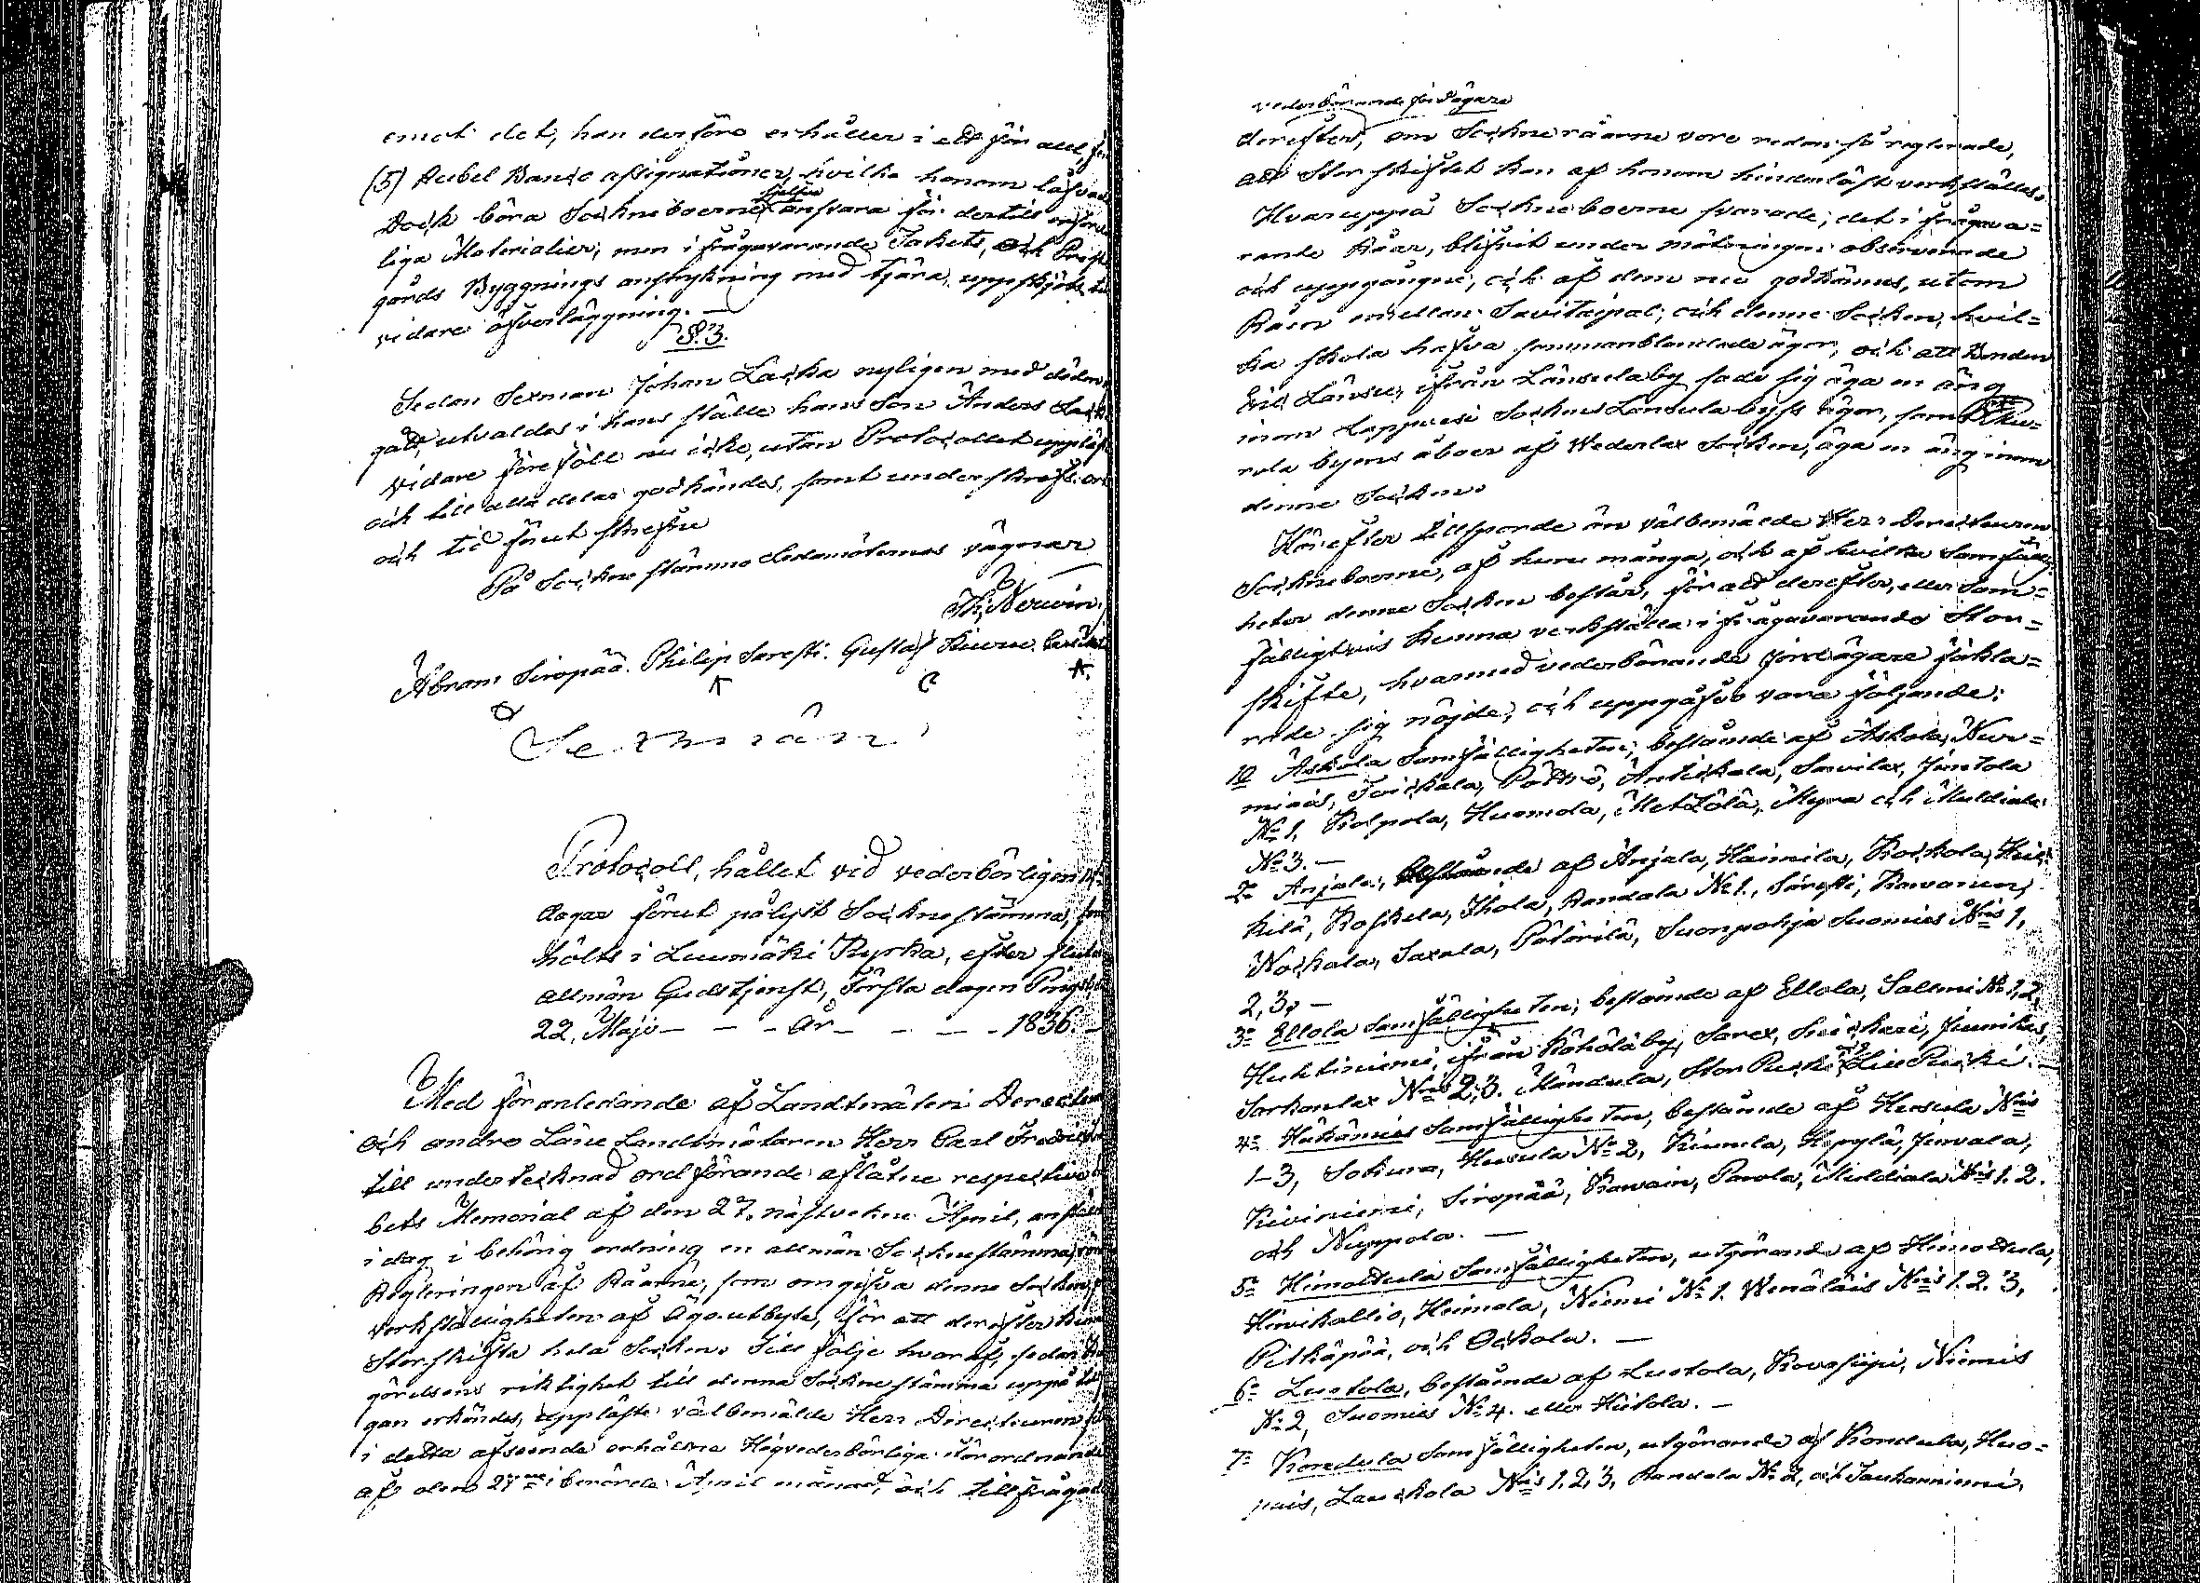 emot det, han derföre erhåller i ett för allt,
(5) Rubel Banco assignationer, hvilka honom
sjelfva
Dock böra Sockneboerne ansvara för dertill
liga Materialier; men i frågavarande Takets, och
gårds Byggnings anstrykning med tjära, uppskjöts
vidare öfverläggning. —
§. 3.
Sedan Sexman Johan Lacka nyligen med döden
gått, utvaldes i hans ställe hans Son Anders
Vidare föreföll nu icke, utan Protocollet
och till alla delar godkändes, samt underskrefs
och tid förut skrefne
På Sockne stämmo Ledamöternas vägnar
Th. Nerwin.
Abram Siropää. Philip Saresti. Gustaf Kiuru.
Sexmän
Protocoll, hållet vid vederbörligen
dagar förut pålyst Sockne stämma,
hölts i Luumäki Kyrka, efter
allmän Gudstjenst, Första dagen
22. Maji — — — år — — — — 1836. —
Med föranledande af Landtmäteri
och andre Läne Landtmätaren Herr Carl
till undertecknad ordförande aflåtne respective
bets Memorial af den 27. nästvekne April,
i dag i behörig ordning en allmän Sockne stämma,
Regleringen af Råarne, som omgifva denne Socken,
verkställigheten af Ägo utbyte, för att derefter
Storskifta hela Socken. Till följe hvaraf, sedan
görelsens riktighet till denna Sockne stämma uppå
gan erkändes, uppläste välbemälde Herr Directeuren
i detta afseende erhållne Högvederbörliga förordnande
af den 27 i berörde April månad, och tillfrågade
vederbörande jordägare
derefter, om Sockneråarne vore redan så reglerade,
att Storskiftet kan af honom hinderlöst verkställas.
Hvaruppå Sockneboerne svarade; det i fråga va=
rande Råar, blifvit under mätningen observerade
och uppgångne, och af dem nu godkännes, utom
Råen emellan Savitaipal, och denne Socken, hvil=
ka skola hafva sammanblandade ägor, och att Bonden
Länsu, ifrån Länsulaby sade sig äga en äng
inom Lappvesi Sockens Länsula bys ägor, samt
rola byens åboer af Wederlax Socken, äga en äng inom
denne Socken.
Härefter tillsporde än välbemälde Herr Directeuren
Sockneboerne, af huru många, och af hvilka Samfällig
heter denne Socken består, för att derefter, eller Sam=
fälligtvis kunna verkställa i frågavarande Stor=
skifte, hvarmed vederbörande jordägare förkla=
rade sig nöjde, och uppgåfvo vara följande:
10 Askola Samfälligheten, bestående af Askola, Nur=
mias, Toickala, Pöttö, Antickala, Savilax, Juntola
No 1, Kolpola, Huomola, Metzölä, Myra och Muldiala
No 3. —
2o Anjala, bestående af Anjala, Haimila, Kockola, Heic=
kilä, Koskela, Ihola, Randala No 1., Säresti, Kawanen,
Nockala, Saxala, Pätärilä, Suonpohja Suomies Nris 1,
2, 3, —
3o Ellola Samfälligheten, bestående af Ellola, Sallmi No 1, 2,
Huhtiniemi, ifrån Kähölä by, Sarex, Suickari, Junikas,
Sarkanlax Nris 2, 3. Mändula, Stor Pucki och Lill Pucki. —
4o Hukämies Samfälligheten, bestående af Heusula Nris
1-3, Sokura, Heusula No 2, Kiurula, Hepylä, Jurvala,
Kiviniemi, Siropää, Kawain, Parola, Muldiala Nris 1. 2.
och Nuppola. —
5o Himottula Samfälligheten, utgörande af Himottula,
Hirvikallio, Heimola, Niemi No 1. Wenäläis Nris 1. 2. 3,
Pitkäpää, och Ockola. —
6o Luotola, bestående af Luotola, Kovasiipi, Niemis
No 2, Suomies No 4. eller Hietola. —
7o Kondula Samfälligheten, utgörande af Kondula, Huo=
pais, Lauckala Nris 1, 2, 3, Randala No 2, och Tauhanniemi,